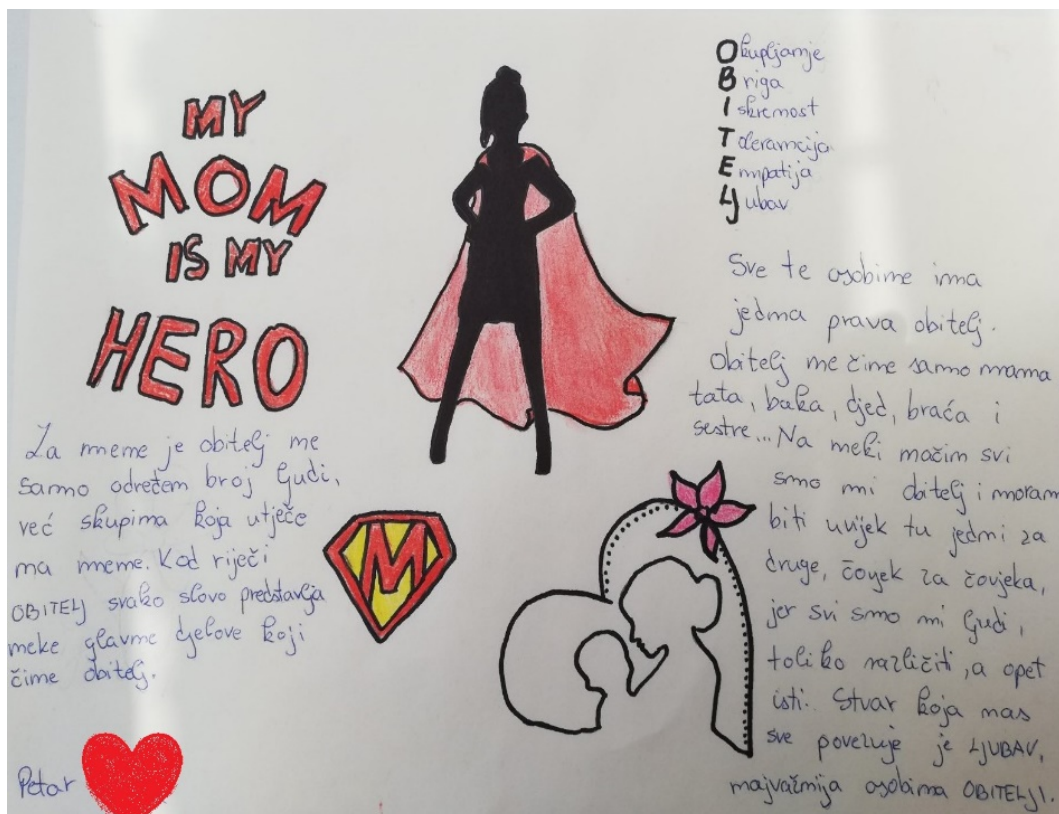 MY
MOM
IS MY
HERO
Za mene je obitelj ne
samo određen broj ljudi,
već skupina koja utječe
na mene. Kod riječi
OBITELJ svako slovo predstavlja
neke glavne djelove koji
čine obitelj.
Petar
M
Okupljanje
Briga
Iskrenost
Tolerancija
Empatija
Ljubav
Sve te osobine ima
jedna prava obitelj.
Obitelj ne čine samo mama
tata, baka, djed, braća i
sestre... Na neki način svi
smo mi obitelj i moram
biti uvijek tu jedni za
druge, čovjek za čovjeka,
jer svi smo mi ljudi,
toliko različiti, a opet
isti. Stvar koja nas
sve povezuje je LJUBAV,
najvažnija osobina OBITELJI.